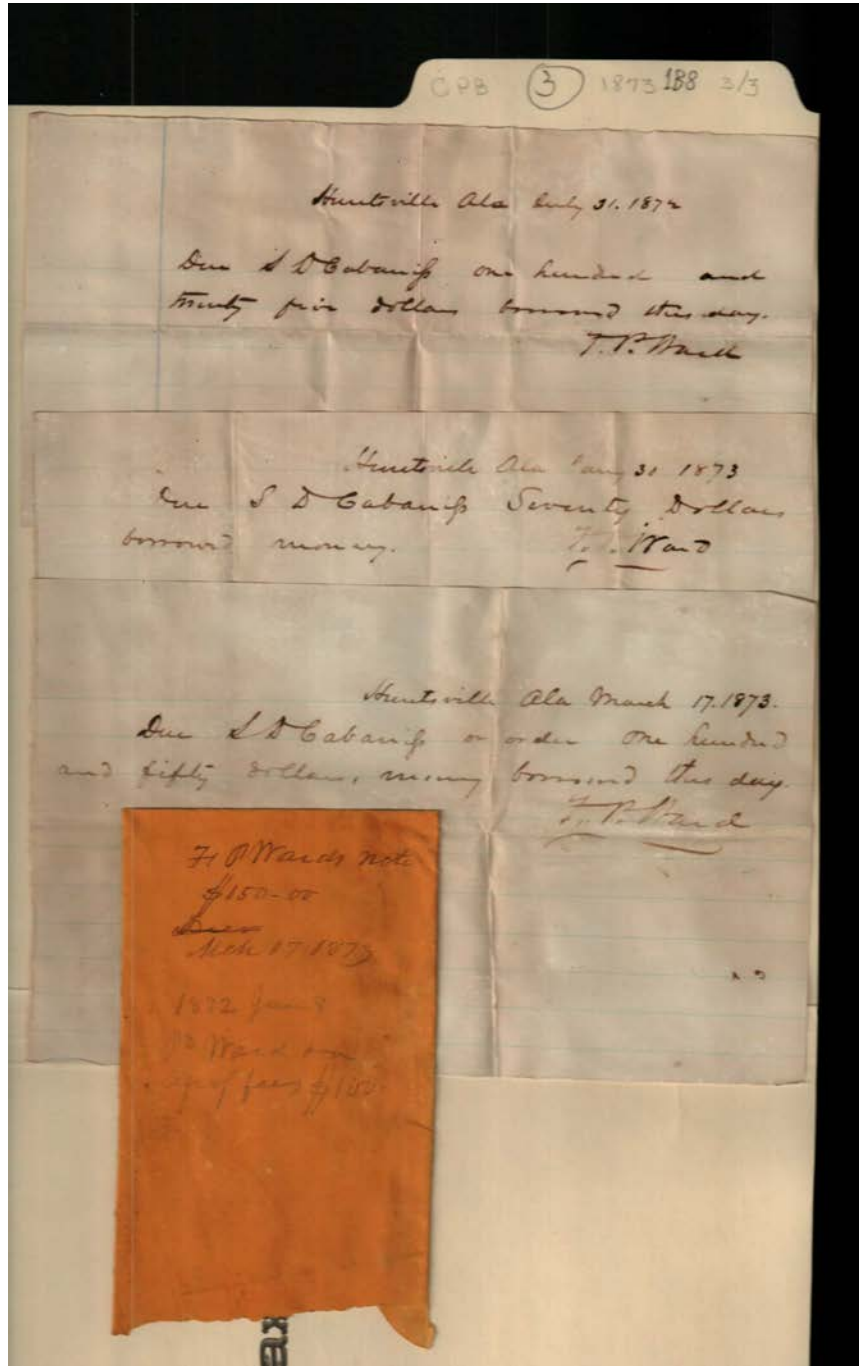 CPB 3 1873 188 3/3
Huntsville Ala July 31. 1872
Due S D Cabaniss one hundred and
twenty five dollars borrowed this day.
T. P. Ward
Huntsville Ala Jany 30 1873
Due S D Cabaniss Seventy Dollars
borrowed money. Ward
Huntsville Ala March 17. 1873.
Due S D Cabaniss or order one hundred
and fifty dollars, money borrowed this day.
F. P. Ward
F P Wards note
$150-00
Mch 17 1873
Ward
fees $100